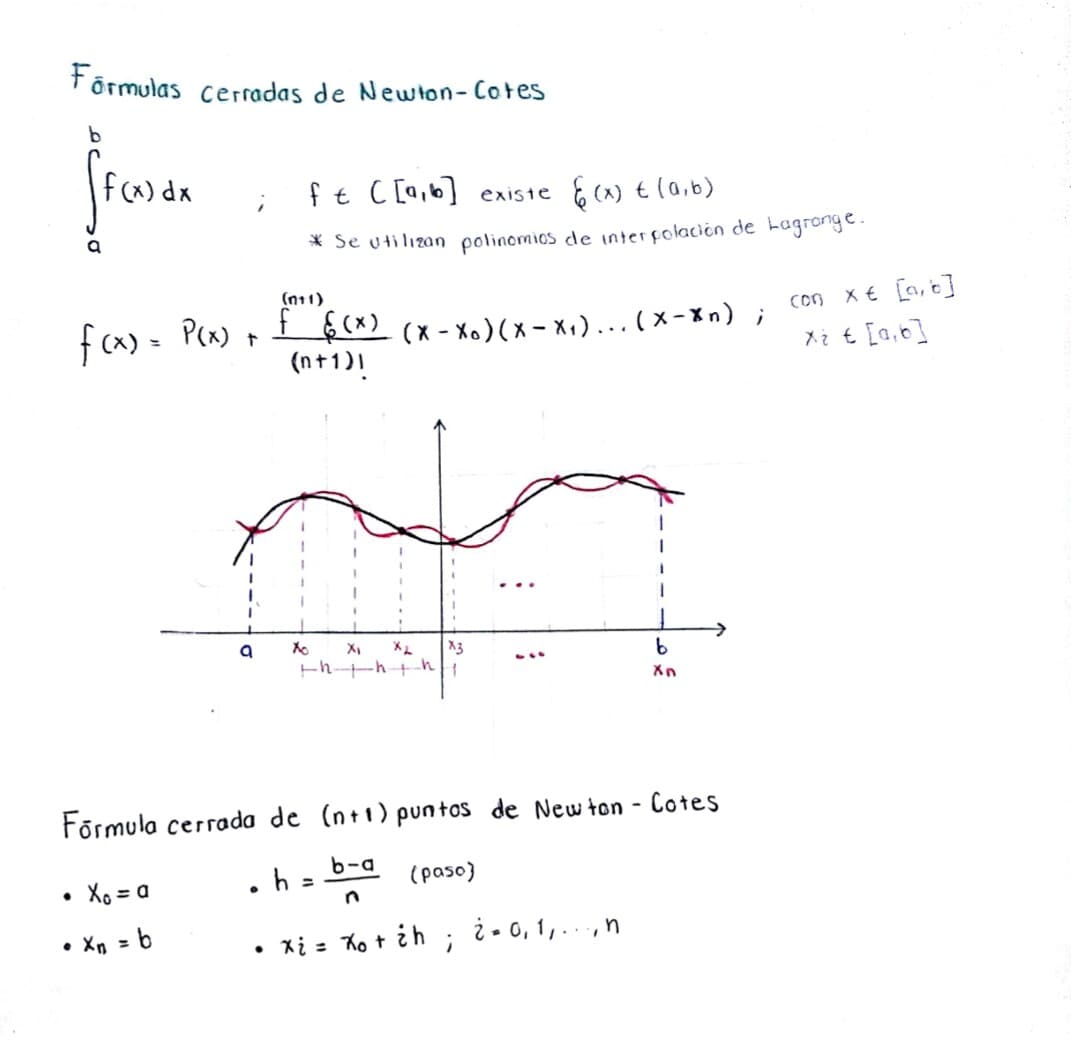 Fórmulas cerradas de Newton-Cotes
b
∫ f(x) dx ; f ∈ C [a,b] existe ξ(x) ∈ (a,b)
a
* Se utilizan polinomios de interpolación de Lagrange.
f(x) = P(x) + f^(n+1) ξ(x) / (n+1)! (x - x₀)(x - x₁)...(x - xn) ; con x ∈ [a,b]
xi ∈ [a,b]
...
a x₀ x₁ x₂ x₃ ... b
h h h xn
Fórmula cerrada de (n+1) puntos de Newton - Cotes
• x₀ = a • h = b-a / n (paso)
• xn = b • xi = x₀ + ih ; i = 0, 1, ..., n